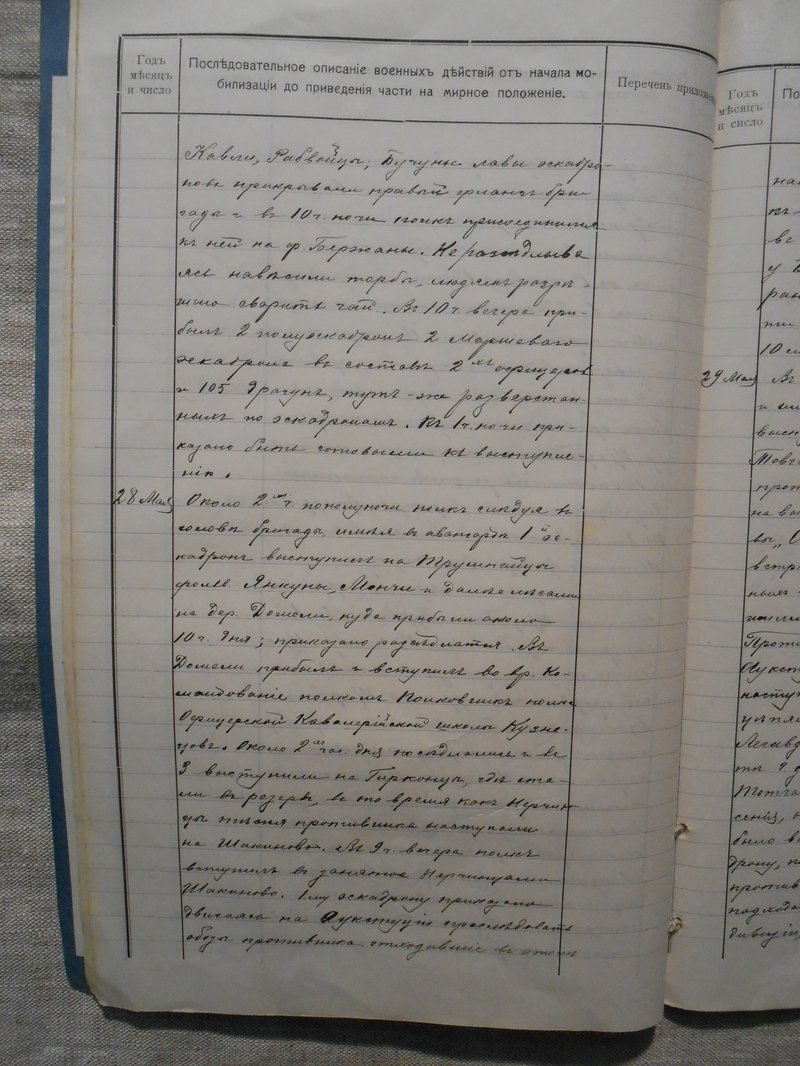 Годъ
мѣсяцъ
и число
Послѣдовательное описаніе военныхъ дѣйствій отъ начала мо-
билизаціи до приведенія части на мирное положеніе.
Перечень приложен
Кавли, Бучуны лавы эскадро-
новъ прикрывали правый флангъ бри-
гады и въ 10 ч. ночи полкъ присоединился
къ ней на ф. Бержаны. Не разсѣдлыва
ясь навѣсили торбы, людямъ разрѣ-
шено сварить чай. Въ 10 ч. вечера при-
былъ 2 полуэскадронъ 2 Маршеваго
эскадрона въ составѣ 2хъ офицеровъ
и 105 драгунъ, тутъ-же разверстан-
ныхъ по эскадронамъ. Къ 1 ч. ночи при-
казано быть готовыми къ выступле-
нію.
28 Мая
Около 2хъ ч. пополуночи полкъ слѣдуя въ
головѣ бригады имѣя въ авангардѣ 1й эс-
кадронъ выступилъ на
фольв. Янкуны, Мончи и далѣе лѣсами
на дер. Домели, куда прибыли около
10 ч. дня; приказано разсѣдлаться. Въ
Домели прибылъ и вступилъ во вр. Ко-
мандованіе полкомъ Полковникъ полка
Офицерской Кавалерійской школы Кузне-
цовъ. Около 2хъ час. дня посѣдлались и въ
3 выступили на Гирконцы, гдѣ ста-
ли въ резервъ, въ то время какъ Нерчин
цы тѣсня противника наступали
на Шакиново. Въ 9 ч. вечера полкъ
вступилъ въ занятое Нерчинцами
Шакиново. 1му эскадрону приказано
двигаясь на преслѣдовать
обозы противника отходившіе въ этомъ
Годъ
мѣсяцъ
и число
По
на
къ
въ
у
ран
10
29 Мая
Въ
и
высту
Товг
прот
на вы
вы
встр
ныхъ
Проти
Аукст
наступ
Легавд
сенія,
было в
дрону, п
против
подхода
дивизіи